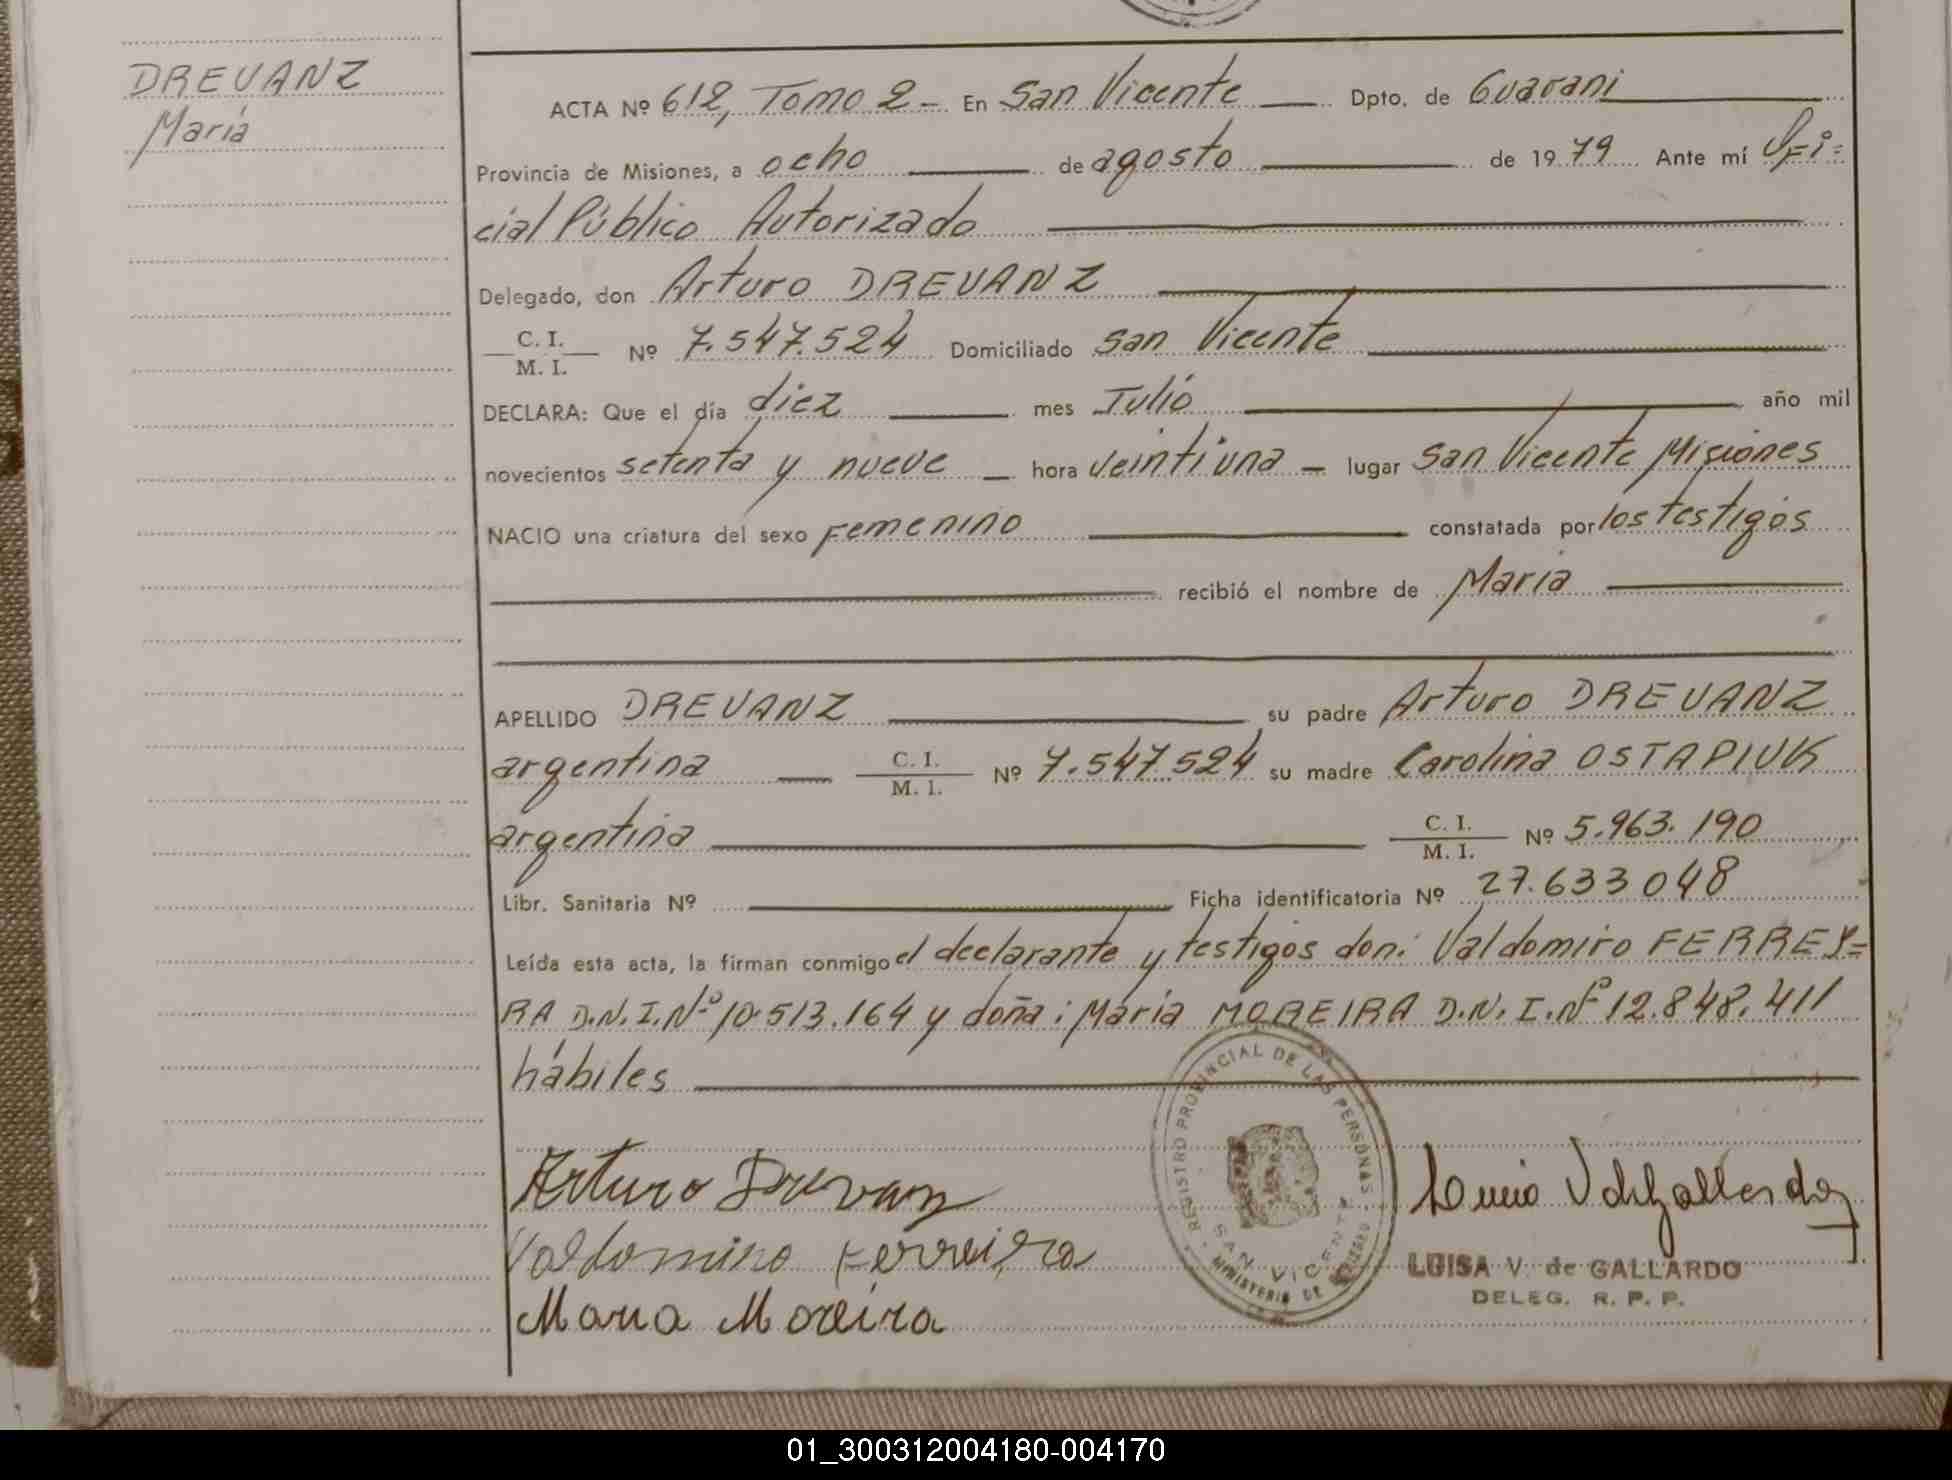 DREVANZ
María
ACTA Nº 612, Tomo 2 - En San Vicente Dpto. de Guaraní
Provincia de Misiones, a ocho de agosto de 1979 Ante mí Ofi=
cial Público Autorizado
Delegado, don Arturo DREVANZ
C. I.
M. I. Nº 7.547.524 Domiciliado San Vicente
DECLARA: Que el día diez mes Julio año mil
novecientos setenta y nueve hora veintiuna - lugar San Vicente Misiones
NACIO una criatura del sexo Femenino constatada por los testigos
recibió el nombre de María
APELLIDO DREVANZ su padre Arturo DREVANZ
argentina C. I. M. I. Nº 7.547.524 su madre Carolina OSTAPIUK
argentina C. I. M. I. Nº 5.963.190
Libr. Sanitaria Nº Ficha identificatoria Nº 27.633048
Leída esta acta, la firman conmigo el declarante y testigos don: Valdomiro FERREY=
RA D.N.I.Nº 10.513.164 y doña: María MOREIRA D.N.I.Nº 12.848.411
hábiles
Arturo Drevanz
Valdomiro Ferreira
Maria Moreira
REGISTRO PROVINCIAL DE LAS PERSONAS
SAN VICENTE
MINISTERIO DE GOBIERNO
LUISA V. de GALLARDO
DELEG. R. P. P.
01_300312004180-004170